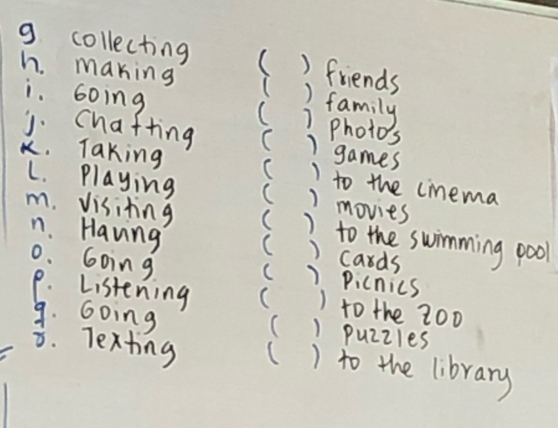 g. collecting ( ) friends
h. making ( ) family
i. Going ( ) Photos
j. Chatting ( ) games
k. Taking ( ) to the cinema
L. Playing ( ) movies
m. Visiting ( ) to the swimming pool
n. Having ( ) Cards
o. Going ( ) Picnics
p. Listening ( ) to the zoo
q. Going ( ) Puzzles
r. Texting ( ) to the library